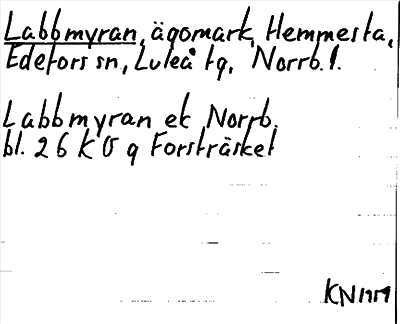 Labbmyran, ägomark, Hemmesta,
Edefors sn, Luleå tg, Norrb. l.
Labbmyran ek Norrb.
bl. 26 K Ö g Forsträsket
KN